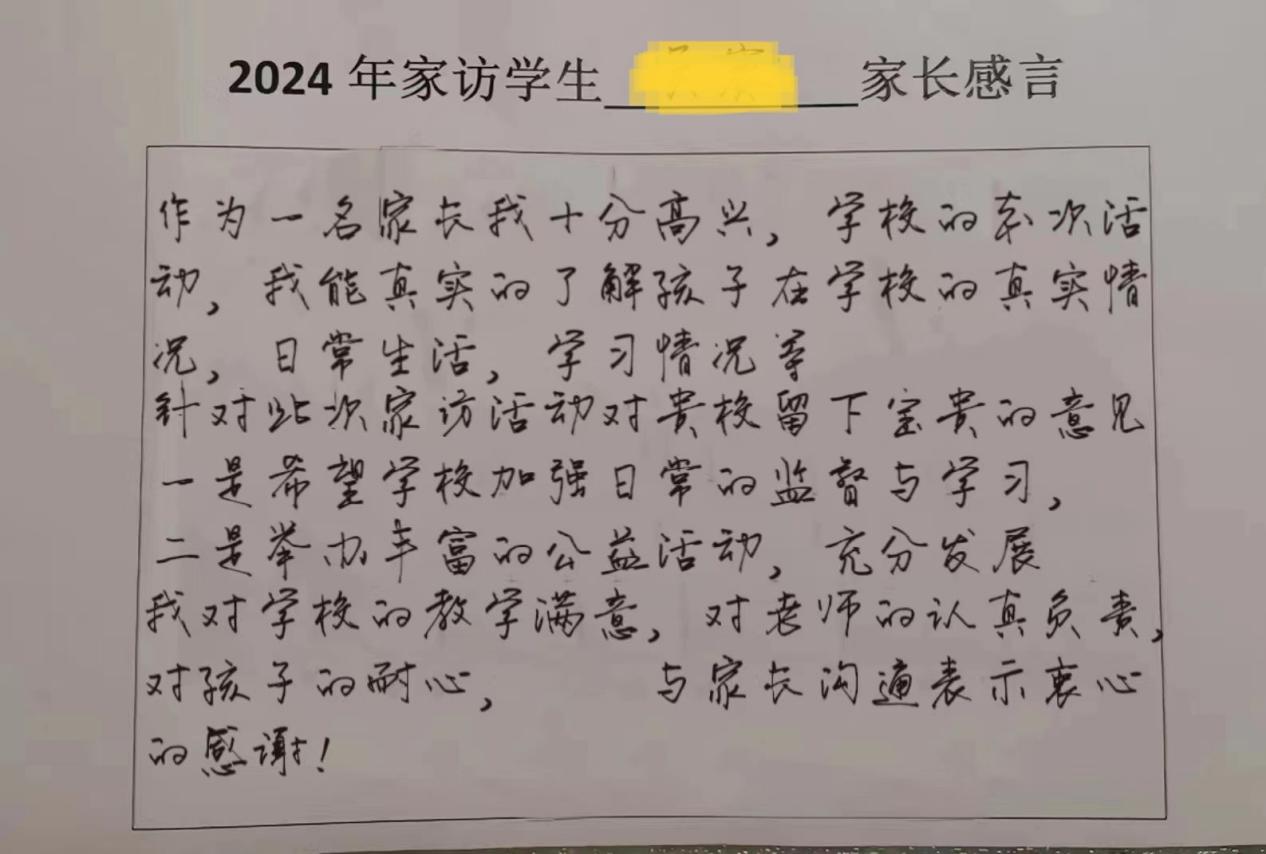 2024年家访学生 家长感言
作为一名家长我十分高兴，学校的本次活
动，我能真实的了解孩子在学校的真实情
况，日常生活，学习情况等
针对此次家访活动对贵校留下宝贵的意见
一是希望学校加强日常的监督与学习，
二是举办丰富的公益活动，充分发展
我对学校的教学满意，对老师的认真负责，
对孩子的耐心， 与家长沟通表示衷心
的感谢！